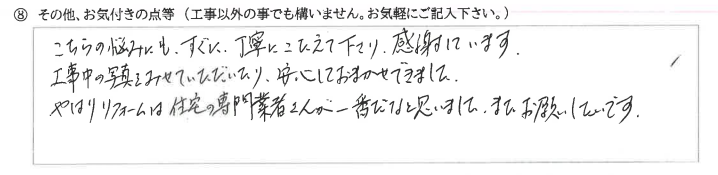 ⑧ その他、お気付きの点等（工事以外の事でも構いません。お気軽にご記入下さい。）
こちらの悩みにも、すぐに、丁寧にこたえて下さり、感謝しています。
工事中の写真をみせていただいたり、安心しておまかせできました。
やはりリフォームは住宅の専門業者さんが一番だなと思いました。またお願いしたいです。